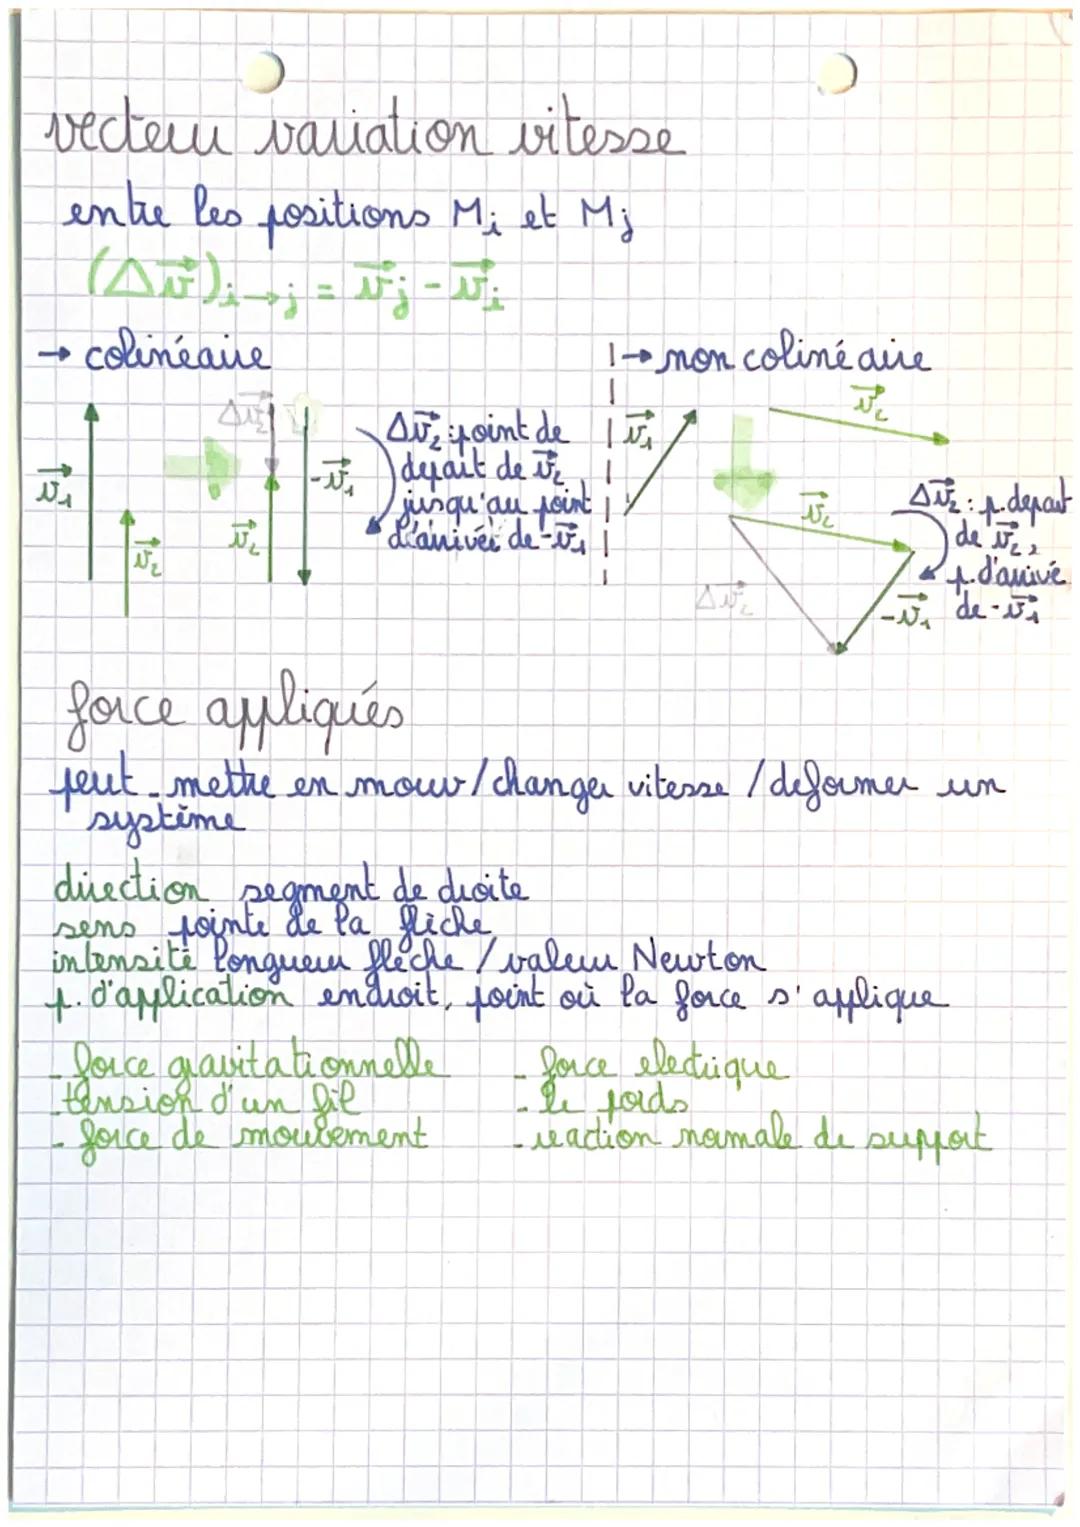 vecteur variation vitesse
entre les positions Mi et Mj
(Δv⃗)i→j = v⃗j - v⃗i
→ colinéaire
v⃗1
v⃗2
Δv⃗2
v⃗2
-v⃗1
Δv⃗2 : point de
depart de v⃗2
jusqu'au point
d'arrivée de -v⃗1
→ non colinéaire
v⃗1
v⃗2
v⃗2
Δv⃗2
-v⃗1
Δv⃗2 : p. depart
de v⃗2,
p. d'arrivé
de -v⃗1
force appliqués
peut mettre en mouv/changer vitesse / deformer un
système
direction segment de droite
sens pointe de la flèche
intensité longueur flèche / valeur Newton
p. d'application endroit, point où la force s'applique
- force gravitationnelle
- tension d'un fil
- force de mouvement
- force electrique
- le poids
- reaction normale de support